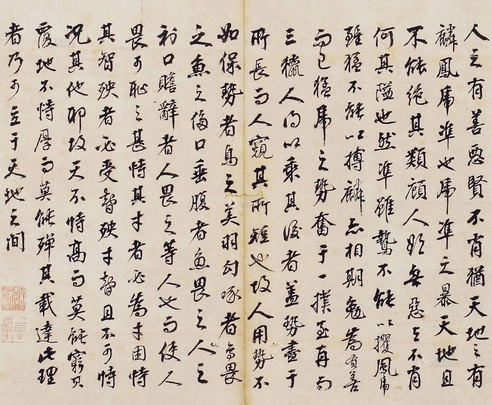 人之有善惡賢不肖猶天地之有
麟鳳虎隼也虎隼之暴天地且
不能絕其類顧人欲無惡與不肖
何其隘也然隼雖鷙不能以攫鳳虎
雖猛不能以搏麟亦相期勉為善
而已猛虎之勢奮于一撲至再而
三獵人得以乘其後者蓋勢盡于
所長而人窺其所短也故人用勢不
如保勢者鳥之美羽勾啄者鳥畏
之魚之侈口垂腹者魚畏之人之
利口贍辭者人畏之等人也而使人
畏可恥之甚恃其才者必為才困恃
其智殃者必受智殃才智且不可恃
況其他耶故天不恃高而莫能窮其
覆地不恃厚而莫能殫其載達此理
者乃可立于天地之間